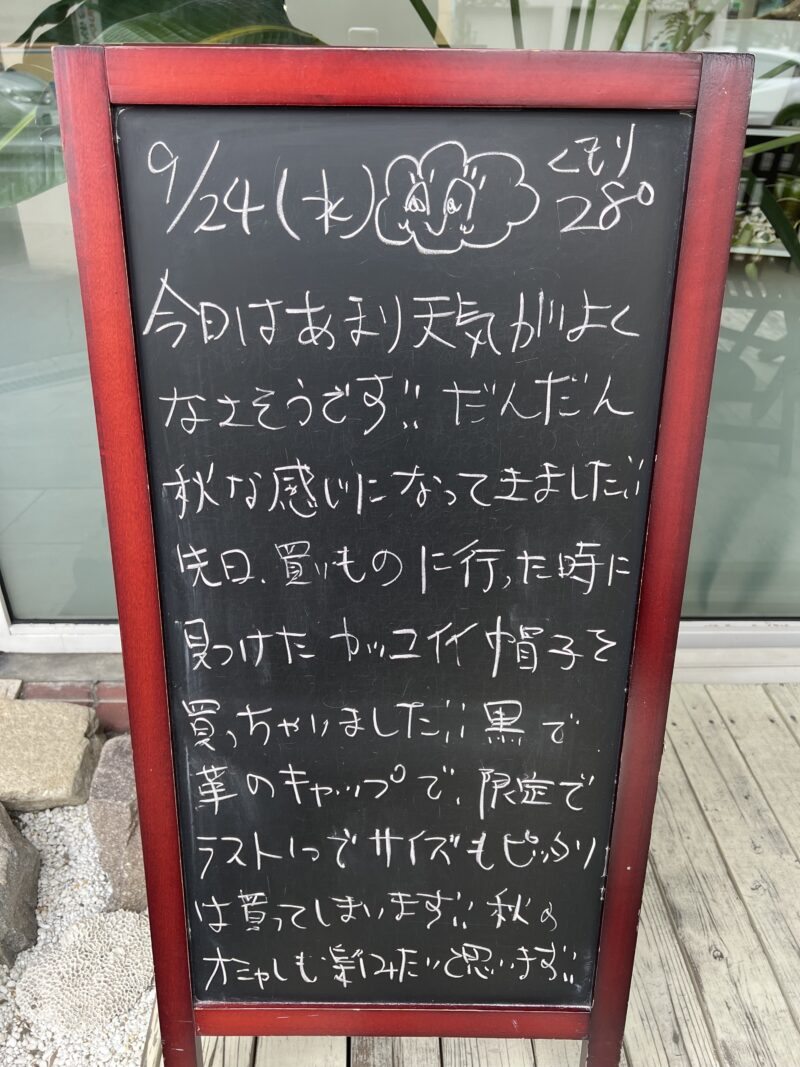 9/24(水) くもり 28°
今日はあまり天気がよく
なさそうです!! だんだん
秋な感じになってきました!!
先日、買いものに行った時に
見つけたカッコイイ帽子を
買っちゃいました!! 黒で
革のキャップで、限定で
ラスト1つでサイズもピッタリ
は買ってしまいます!! 秋の
オシャレも楽しみたいと思います!!